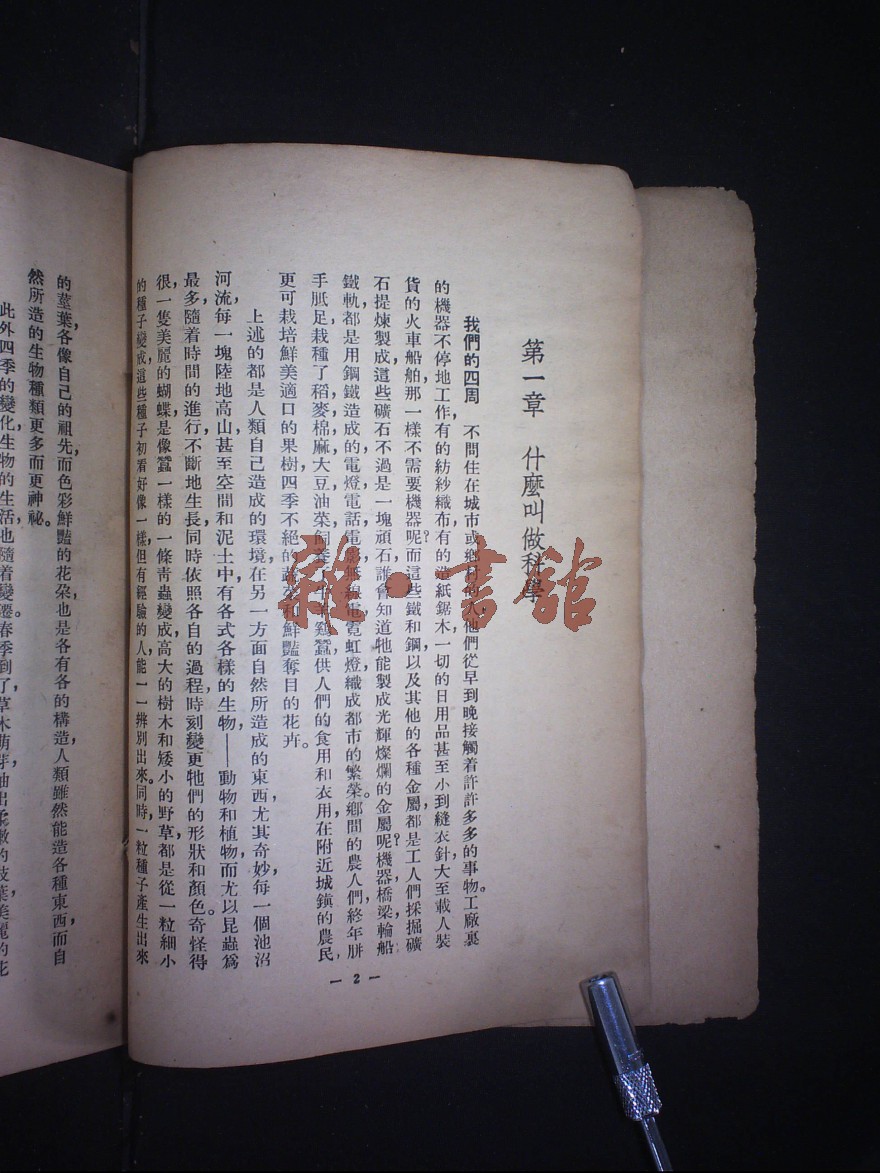 第一章　什麼叫做科學
我們的四周　不問住在城市或鄉村的人，他們從早到晚接觸着許許多多的事物。工廠裏
的機器不停地工作，有的紡紗織布，有的造紙鋸木，一切的日用品甚至小到縫衣針，大至載人裝
貨的火車船舶，那一樣不需要機器呢？而這些鐵和鋼以及其他的各種金屬，都是工人們採掘礦
石提煉製成，這些礦石不過是一塊頑石，誰會知道牠能製成光輝燦爛的金屬呢？機器，橋梁，輪船，
鐵軌，都是用鋼鐵造成的，電燈，電話，電影，無線電，霓虹燈，織成都市的繁榮。鄉間的農人們，終年胼
手胝足，栽種了稻，麥，棉，麻，大豆，油菜，飼養了牛羊鷄蠶，供人們的食用和衣用，在附近城鎭的農民，
更可栽培鮮美適口的果樹，四季不絕的蔬菜和鮮豔奪目的花卉。
上述的都是人類自己造成的環境，在另一方面，自然所造成的東西，尤其奇妙，每一個池沼
河流，每一塊陸地高山，甚至空間和泥土中，有各式各樣的生物——動物和植物，而尤以昆蟲爲
最多，隨着時間的進行，不斷地生長，同時依照各自的過程，時刻變更牠們的形狀和顏色。奇怪得
很，一隻美麗的蝴蝶，是像蠶一樣的一條靑蟲變成，高大的樹木和矮小的野草，都是從一粒細小
的種子變成，這些種子初看好像一樣，但有經驗的人，能一一辨別出來。同時，一粒種子產生出來
— 2 —
的莖葉，各像自己的祖先，而色彩鮮豔的花朵，也是各有各的構造，人類雖然能造各種東西，而自
然所造的生物種類更多而更神祕。
此外四季的變化，生物的生活，也隨着變遷。春季到了，草木萌芽，抽出柔嫩的枝葉，美麗的花
雜·書館